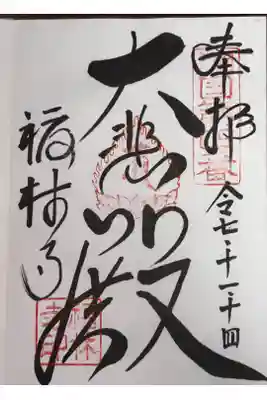 奉拝
令七・十一・十四
大悲殿
福林寺